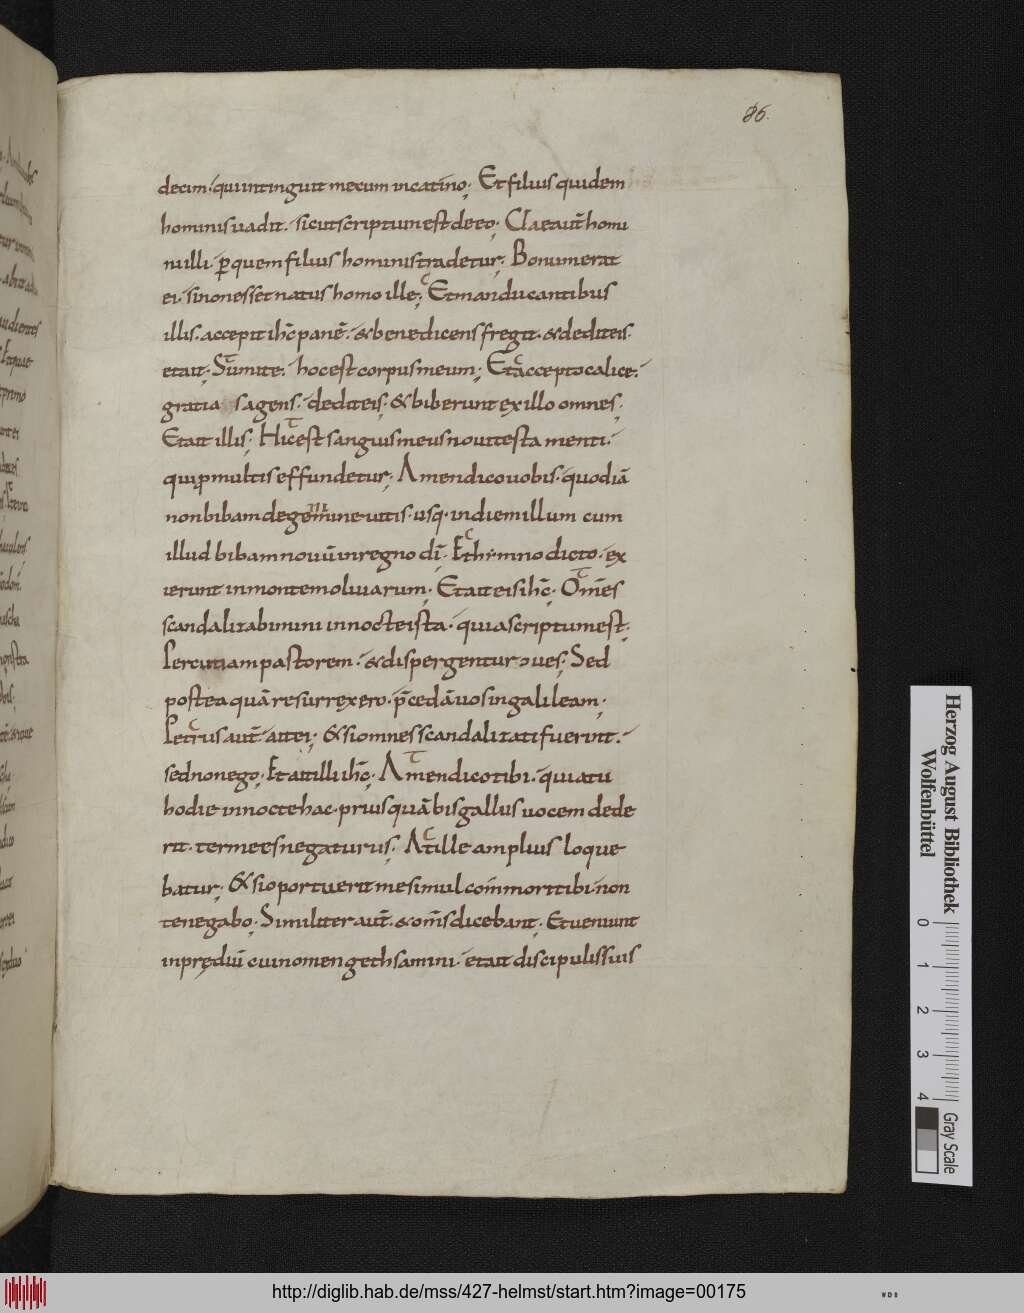 86.
decim· qui intinguit mecum in catino; Et filius quidem
hominis uadit· sicut scriptum est de eo; Uae aut̄ homi
ni illi· ꝑ quem filius hominis tradetur; Bonum erat
ei· si non esset natus homo ille; Et manducantibus
illis· accepit ihc̄ panē· & benedicens fregit· & dedit eis·
et ait; Sumite· hoc est corpus meum; Et accepto calice·
gratias agens· dedit eis; & biberunt ex illo omnes;
Et ait illis; Hic est sanguis meus noui testamenti·
qui ꝑ multis effundetur; Amen dico uobis· quod iā
non bibam de gemine uitis· usq· in diem illum cum
illud bibam nouū in regno dī; Et hi·mno dicto· ex
ierunt in montem oliuarum; Et ait eis ihc̄; Om̄es
scandalizabimini in nocte ista· quia scriptum est;
Percutiam pastorem· & dispergentur oues; Sed
postea quā resurrexero· p̄cedā uos in galileam;
Petrus aut̄ ait ei; & si omnes scandalizati fuerint·
sed non ego; Et ait illi ihc̄; Amen dico tibi· quia tu
hodie in nocte hac· prius quā bis gallus uocem dede
rit· ter me es negaturus; At ille amplius loque
batur; & si oportuerit me simul conmori tibi· non
te negabo; Similiter aut̄· & om̄s dicebant; Et ueniunt
in prędiū cui nomen gethsamini· et ait discipulis suis
Herzog August Bibliothek
Wolfenbüttel
0 1 2 3 4
Gray Scale
http://diglib.hab.de/mss/427-helmst/start.htm?image=00175